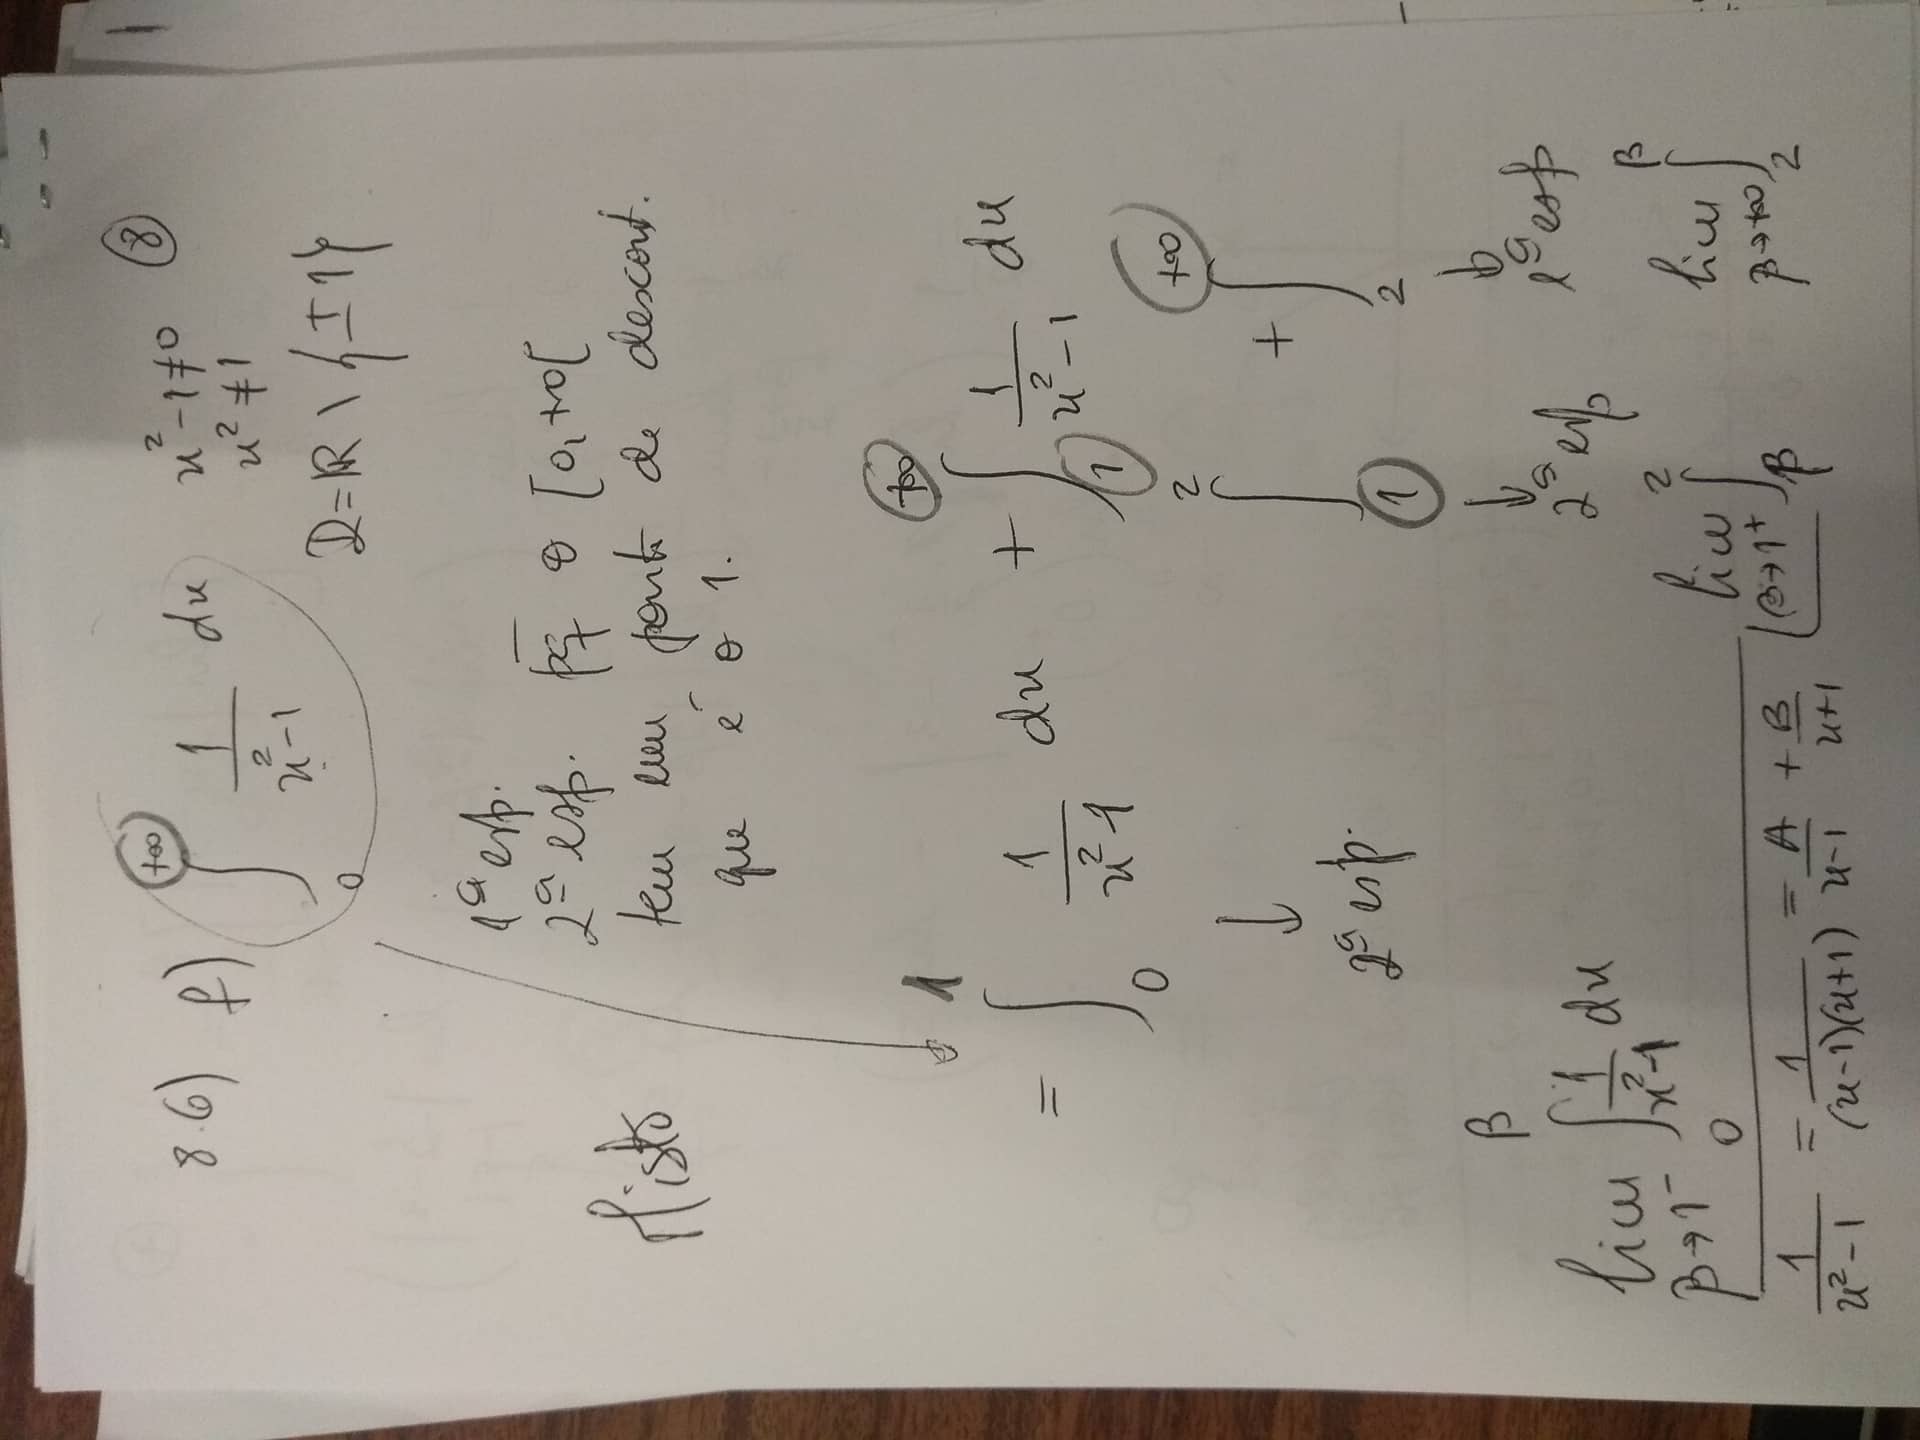 8.6) f) ∫₀^{+∞} 1/(x²-1) dx   x²-1≠0   ⑧
x²≠1
D=ℝ \ {±1}
1ª esp.
2ª esp. pq o [0,+∞[
Misto tem um ponto de descont.
que é o 1.
= ∫₀^1 1/(x²-1) dx + ∫₁^{+∞} 1/(x²-1) dx
↓ ∫₁^2 + ∫₂^{+∞}
2ª esp.
↓ ↓
2ª esp 1ª esp
lim β→1⁻ ∫₀^β 1/(x²-1) dx
lim β→1⁺ ∫_β^2   lim β→+∞ ∫₂^β
1/(x²-1) = 1/((x-1)(x+1)) = A/(x-1) + B/(x+1)